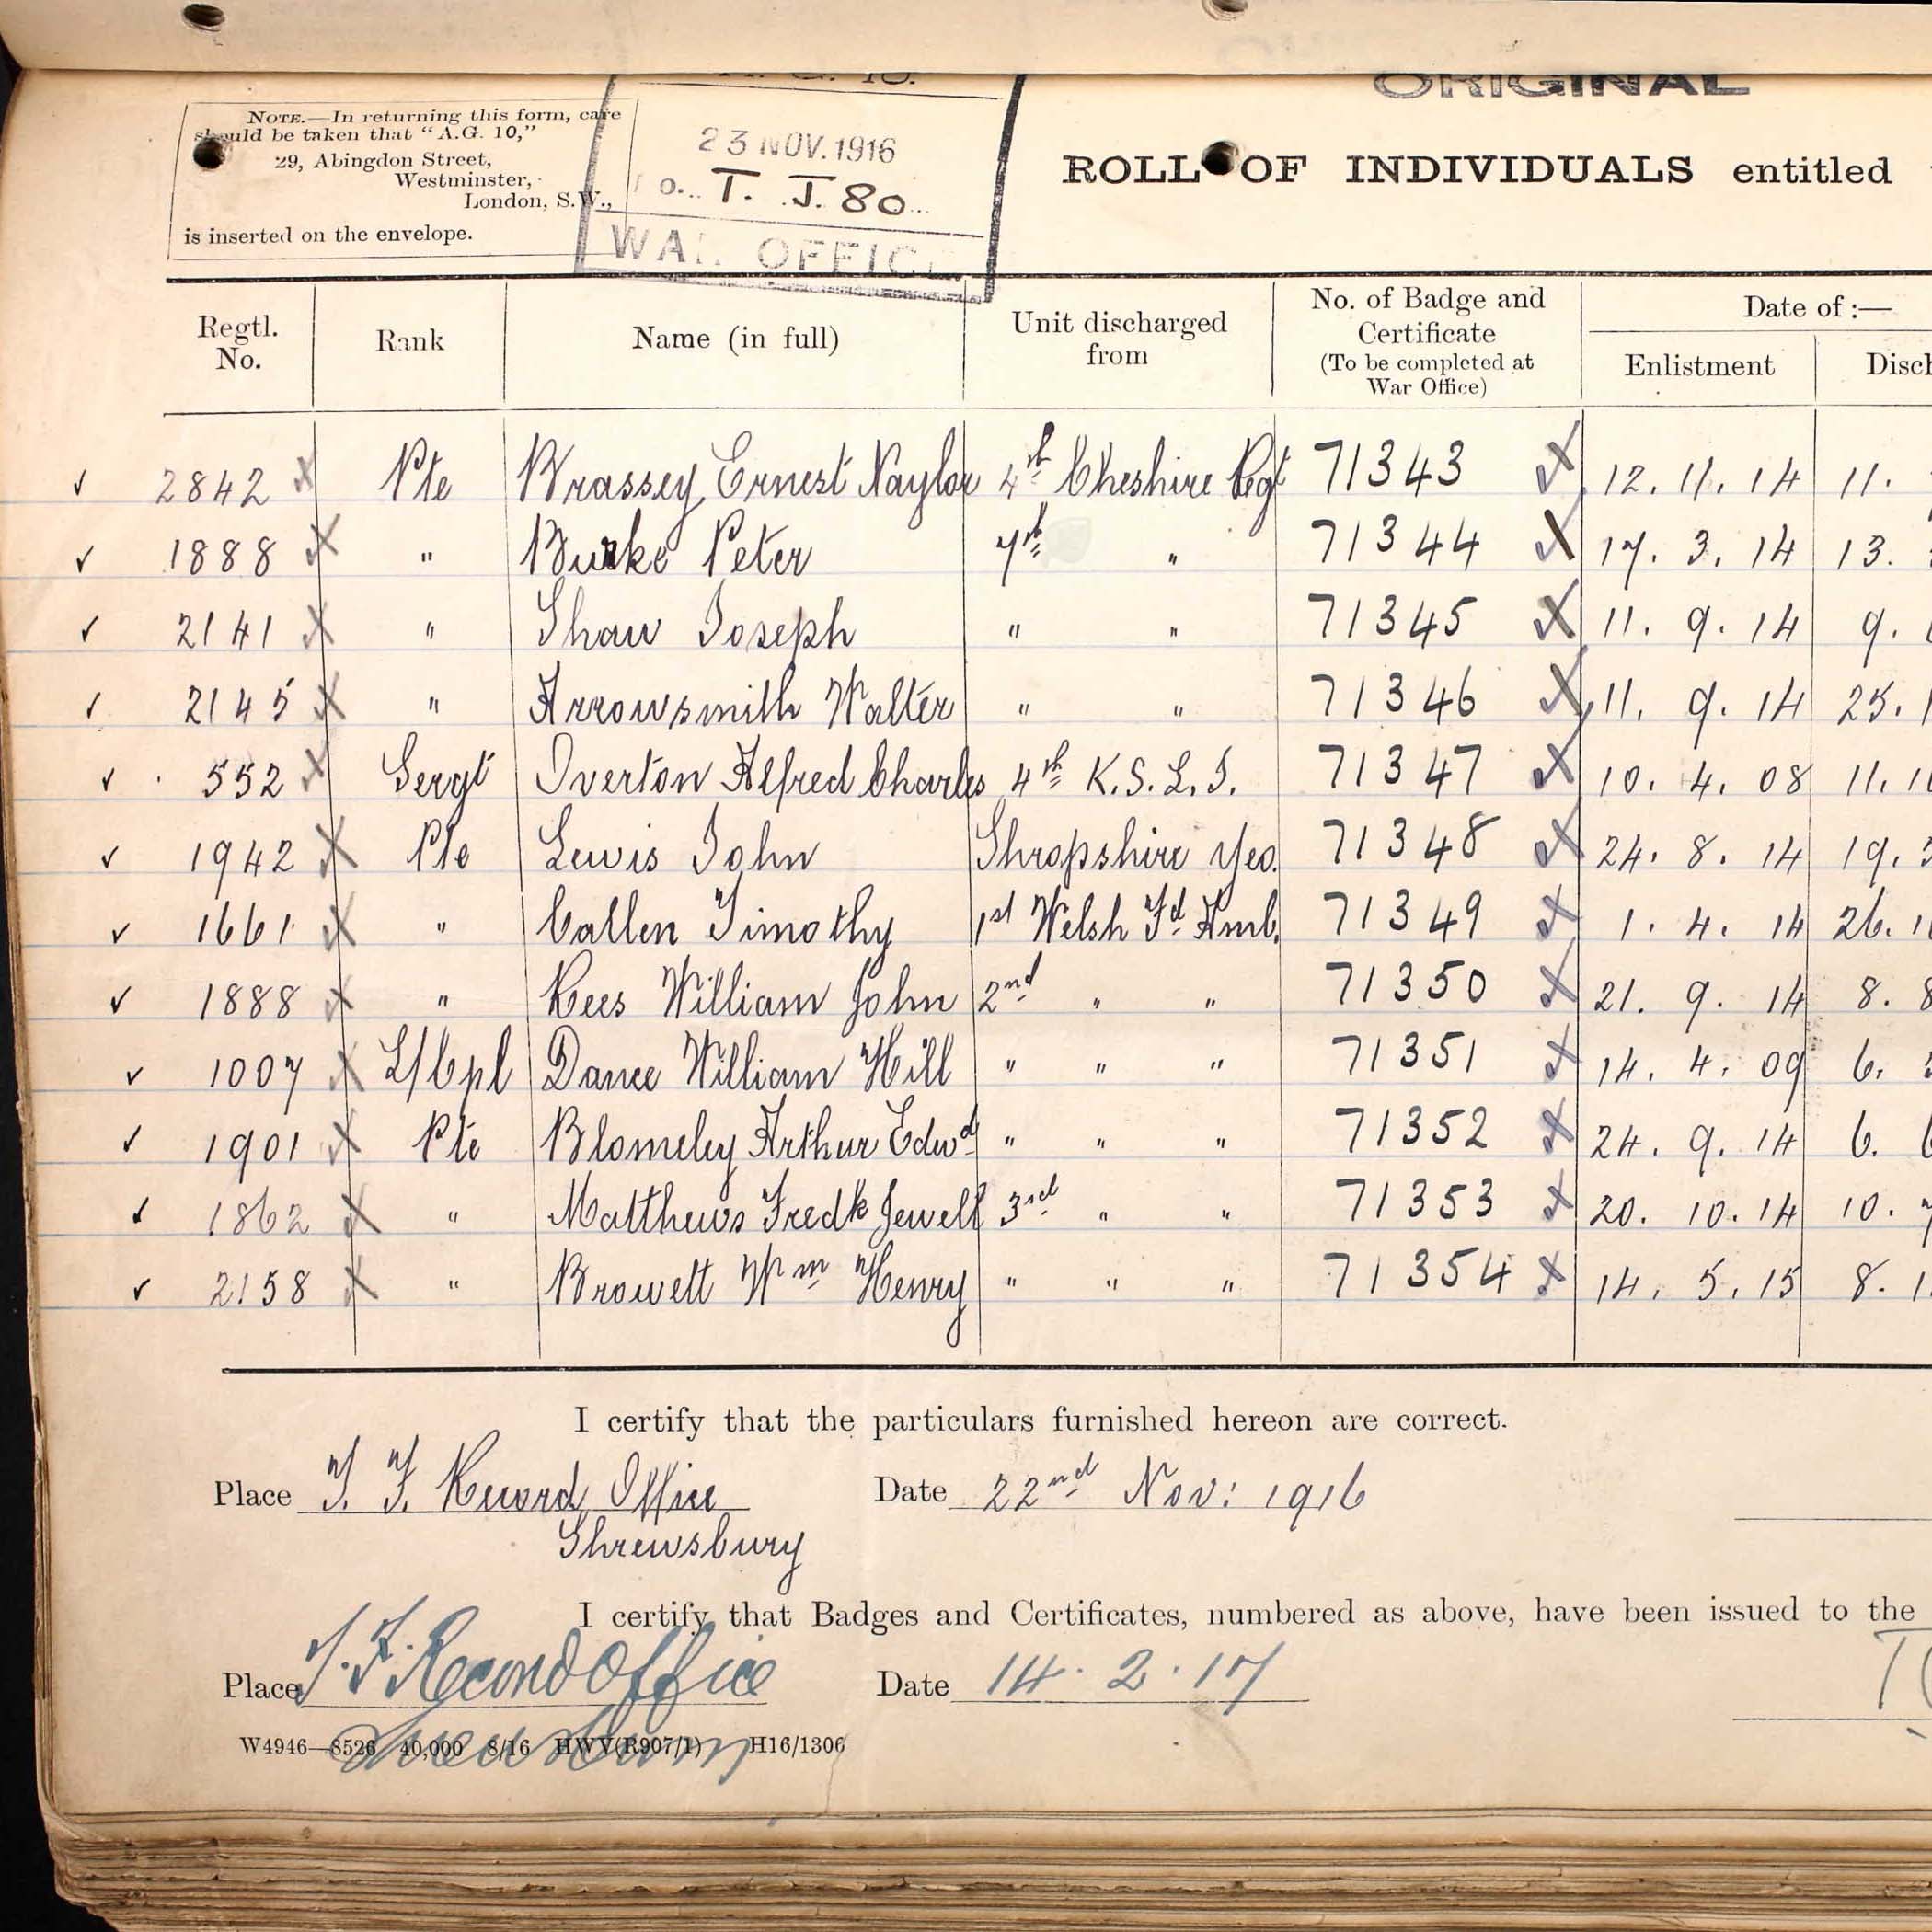 ORIGINAL
NOTE.—In returning this form, care
should be taken that "A.G. 10,"
29, Abingdon Street,
Westminster,
London, S.W.,
is inserted on the envelope.
23 NOV. 1916
T. J. 80
WAR OFFICE
ROLL OF INDIVIDUALS entitled
Regtl. No. Rank Name (in full) Unit discharged from No. of Badge and Certificate (To be completed at War Office) Date of :—
Enlistment Disch
2842 Pte Brassey, Ernest Naylor 4th Cheshire Rgt 71343 12. 11. 14 11.
1888 " Burke Peter 7th " 71344 17. 3. 14 13.
2141 " Shaw Joseph " " 71345 11. 9. 14 9.
2145 " Arrowsmith Walter " " 71346 11. 9. 14 25. 1
552 Sergt Overton Alfred Charles 4th K.S.L.I. 71347 10. 4. 08 11. 1
1942 Pte Lewis John Shropshire Yeo. 71348 24. 8. 14 19.
1661 " Callen Timothy 1st Welsh Fd Amb. 71349 1. 4. 14 26. 1
1888 " Rees William John 2nd " " 71350 21. 9. 14 8. 8
1007 L/Cpl Dance William Hill " " " 71351 14. 4. 09 6.
1901 Pte Blomeley Arthur Edwd " " " 71352 24. 9. 14 6. 6
1862 " Matthews Fredk Jewell 3rd " " 71353 20. 10. 14 10. 7
2158 " Browett Wm Henry " " " 71354 14. 5. 15 8. 1
I certify that the particulars furnished hereon are correct.
Place T. F. Record Office Date 22nd Nov: 1916
Shrewsbury
I certify that Badges and Certificates, numbered as above, have been issued to the
Place T. F. Record Office Date 14. 2. 17
Shrewsbury
W4946—8526 40,000 8/16 HWV(R907/1) H16/1306